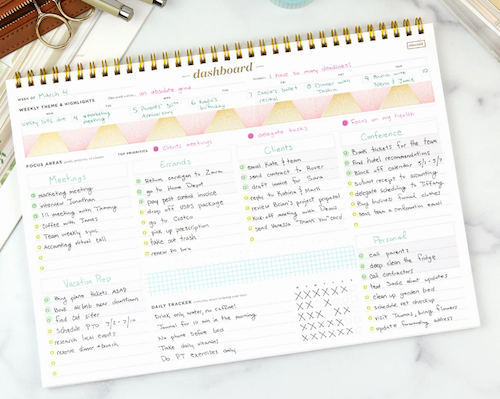 dashboard
WEEK OF March 4
an absolute grind
I have so many deadlines!
WEEKLY THEME & HIGHLIGHTS
4 marketing meeting
5 Parents' 30th Anniversary
6 Kayla's birthday
7
8 Dinner with
9 Brunch with
10
FOCUS AREAS
TOP PRIORITIES
clients meetings
delegate tasks
focus on my health
Meetings
marketing meeting
interview Jonathan
1:1 meeting with Timmy
Coffee with James
Team weekly sync
Accounting virtual call
Errands
Return cardigan to Zara
go to Home Depot
pay pest control invoice
drop off USPS package
go to Costco
pick up prescription
take out trash
renew PO box
Clients
email Kate & team
send contract to Rover
draft invoice for Sara
reply to Katrina &
review Brian's project proposal
Kick-off meeting with
send Vanessa "Thank you" card
Conference
Book tickets for the team
find hotel recommendations
block off calendar
submit receipts to accounting
delegate scheduling to Tiffany
buy business formal clothes
send team a confirmation email
Vacation Prep
Buy plane tickets ASAP
Book airbnb near downtown
find cat sitter
Schedule PTO
research best eats!!
reserve dinner + brunch
DAILY TRACKER
Drink only water, no coffee!
Journal for 10 min in the morning
No phone before bed
Take daily vitamins
Do PT exercises daily
Personal
call parents
deep clean the fridge
call contractors
text Sadie about updates
clean up garden bed
schedule vet checkup
visit Tamás, bring flowers
update forwarding address